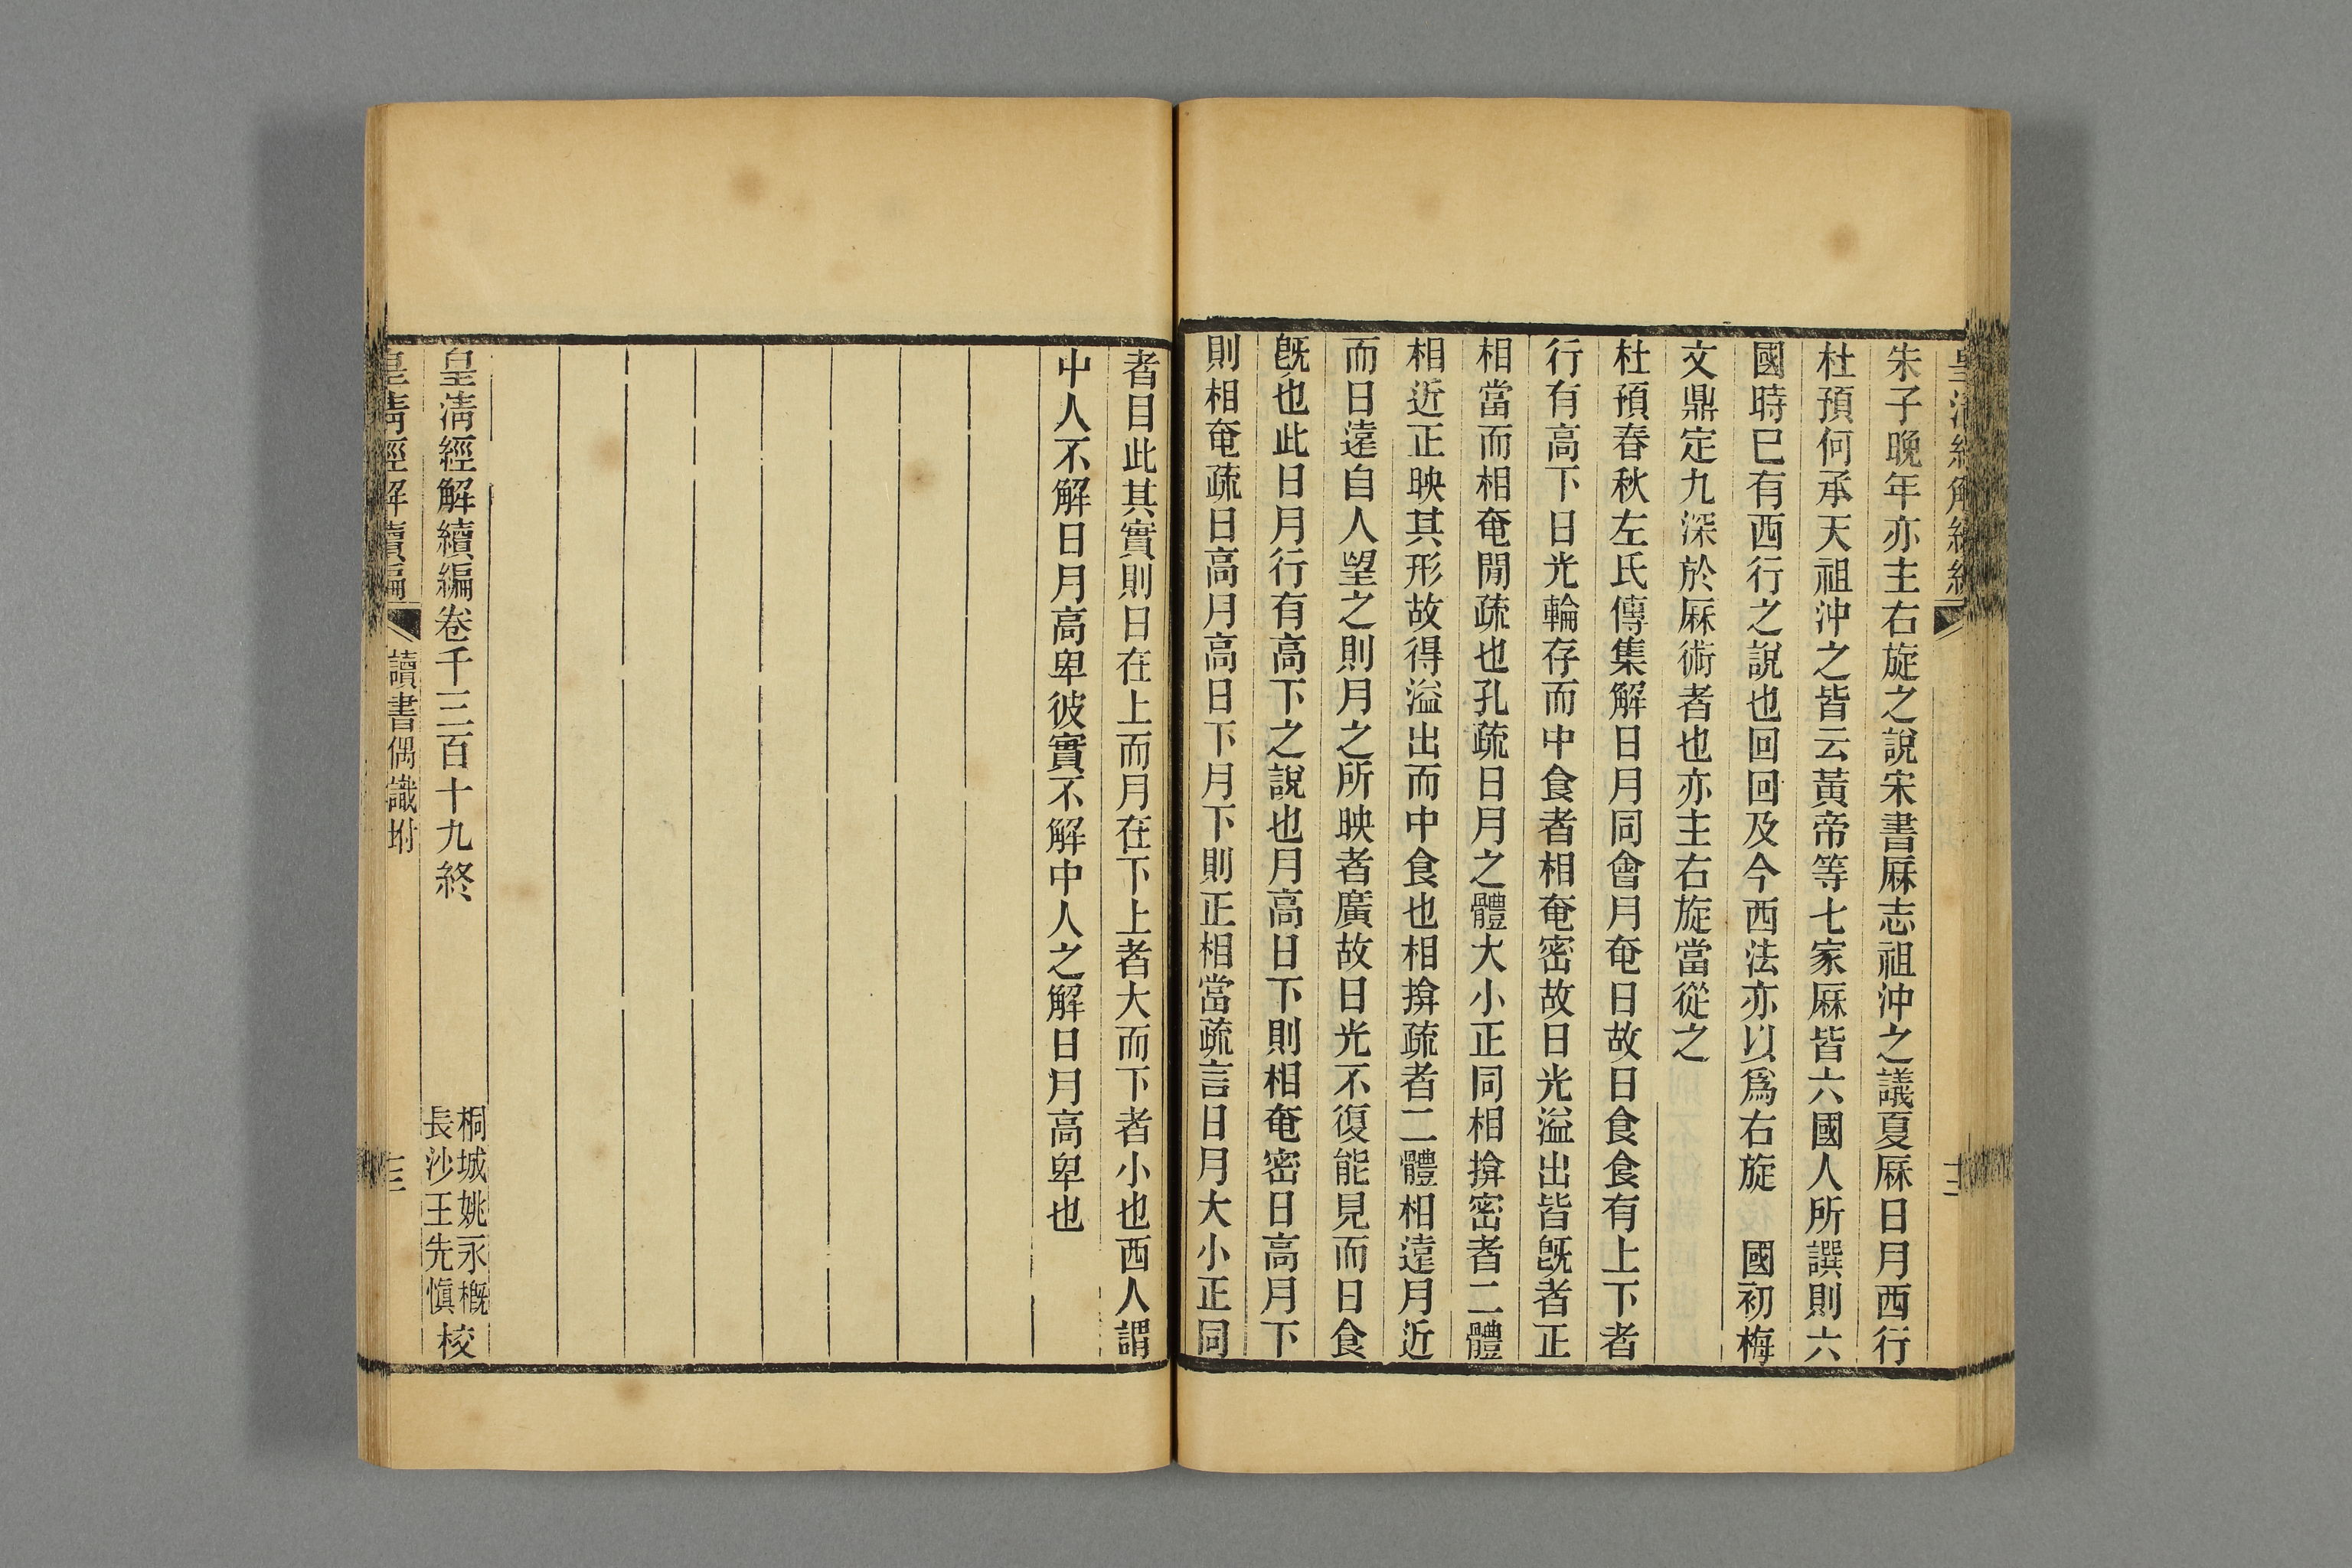 朱子晚年亦主右旋之說宋書厤志祖沖之議夏厤日月西行
杜預何承天祖沖之皆云黃帝等七家厤皆六國人所譔則六
國時已有西行之說也回回及今西法亦以爲右旋 國初梅
文鼎定九深於厤術者也亦主右旋當從之
杜預春秋左氏傳集解日月同會月奄日故日食食有上下者
行有高下日光輪存而中食者相奄密故日光溢出皆旣者正
相當而相奄閒疏也孔疏日月之體大小正同相揜密者二體
相近正映其形故得溢出而中食也相揜疏者二體相遠月近
而日遠自人望之則月之所映者廣故日光不復能見而日食
旣也此日月行有高下之說也月高日下則相奄密日高月下
則相奄疏日高月高日下月下則正相當疏言日月大小正同
者目此其實則日在上而月在下上者大而下者小也西人謂
中人不解日月高卑彼實不解中人之解日月高卑也
皇淸經解續編卷千三百十九終
桐城姚永概
長沙王先愼
校
皇淸經解續編
讀書偶識坿
十三